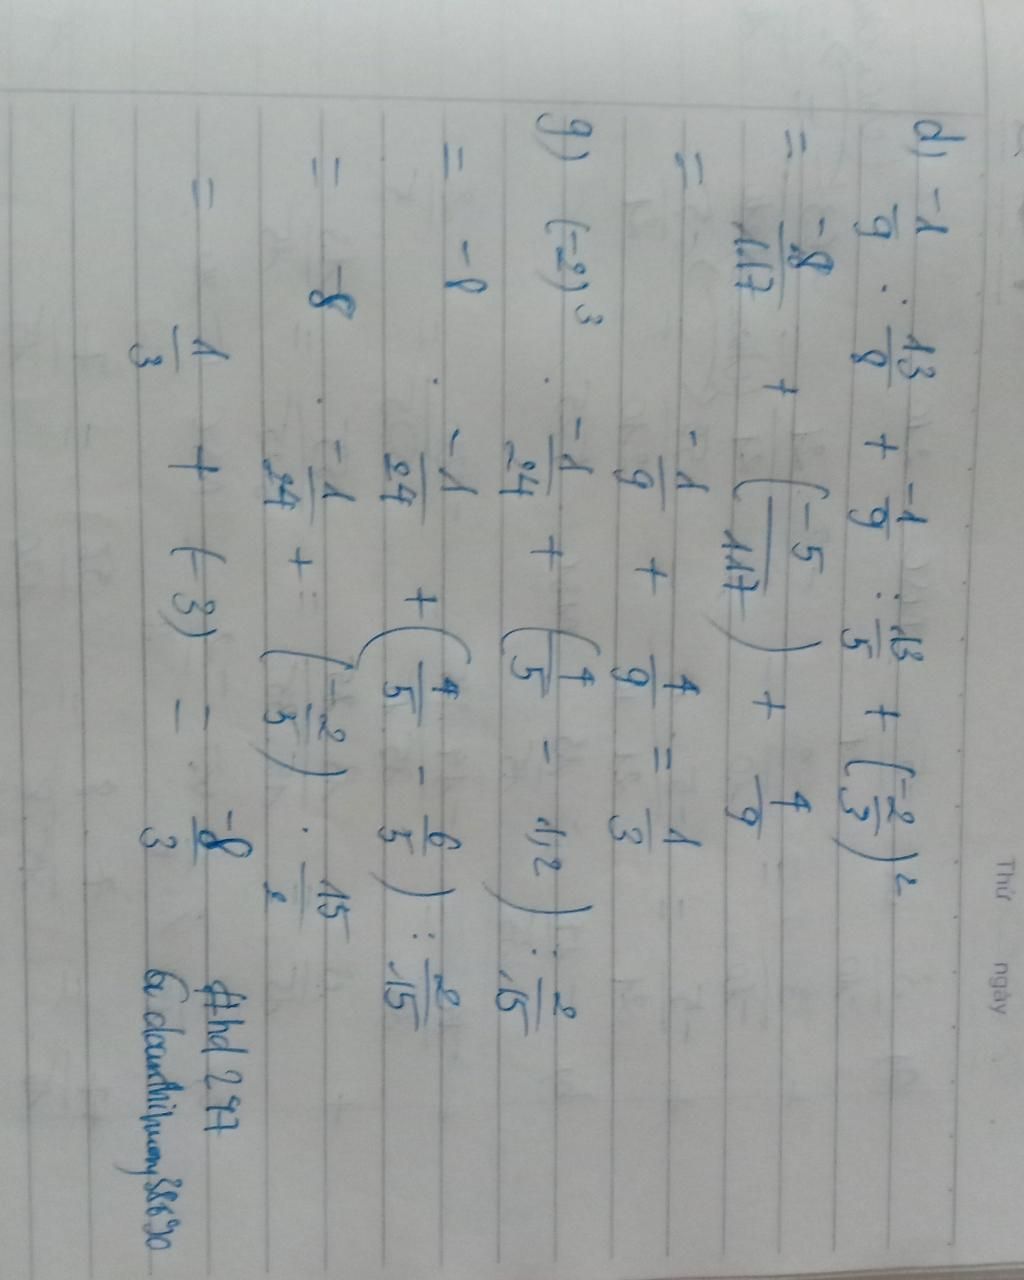 Thứ ngày
d) -1/9 : 13/8 + -1/9 : 13/5 + (-2/3)²
= -8/117 + (-5/117) + 4/9
= -1/9 + 4/9 = 1/3
g) (-2)³ . -1/24 + (4/5 - 1,2) : 2/15
= -8 . -1/24 + (4/5 - 6/5) : 2/15
= -8 . -1/24 + (-2/5) . 15/2
= 1/3 + (-3) = -8/3
#hd 247